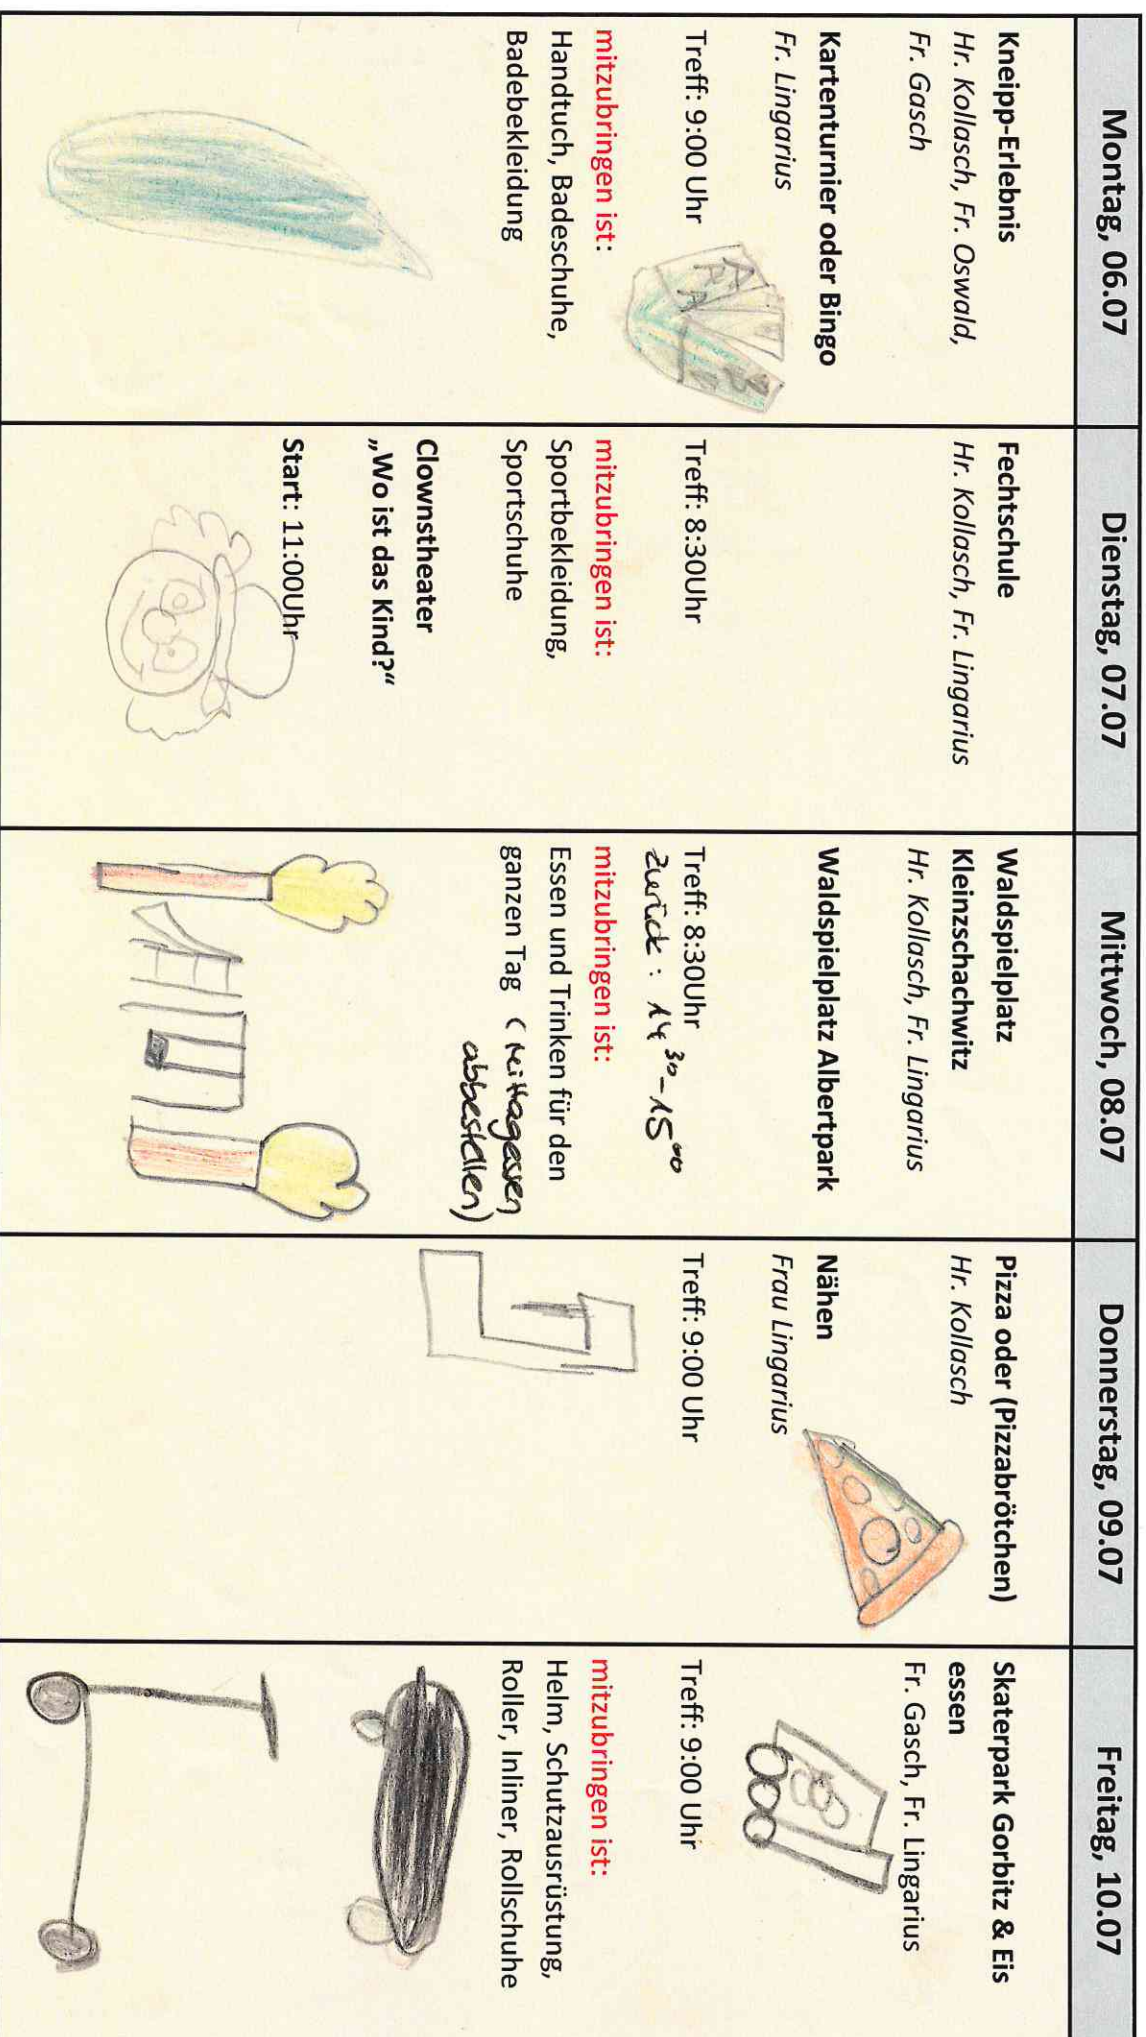 Montag, 06.07
Kneipp-Erlebnis
Hr. Kollasch, Fr. Oswald,
Fr. Gasch
Kartenturnier oder Bingo
Fr. Lingarius
Treff: 9:00 Uhr
mitzubringen ist:
Handtuch, Badeschuhe,
Badebekleidung
Dienstag, 07.07
Fechtschule
Hr. Kollasch, Fr. Lingarius
Treff: 8:30Uhr
mitzubringen ist:
Sportbekleidung,
Sportschuhe
Clownstheater
„Wo ist das Kind?“
Start: 11:00Uhr
Mittwoch, 08.07
Waldspielplatz
Kleinzschachwitz
Hr. Kollasch, Fr. Lingarius
Waldspielplatz Albertpark
Treff: 8:30Uhr
Zurück: 14 30 - 15 00
mitzubringen ist:
Essen und Trinken für den
ganzen Tag (Mittagessen
abbestellen)
Donnerstag, 09.07
Pizza oder (Pizzabrötchen)
Hr. Kollasch
Nähen
Frau Lingarius
Treff: 9:00 Uhr
Freitag, 10.07
Skaterpark Gorbitz & Eis
essen
Fr. Gasch, Fr. Lingarius
Treff: 9:00 Uhr
mitzubringen ist:
Helm, Schutzausrüstung,
Roller, Inliner, Rollschuhe